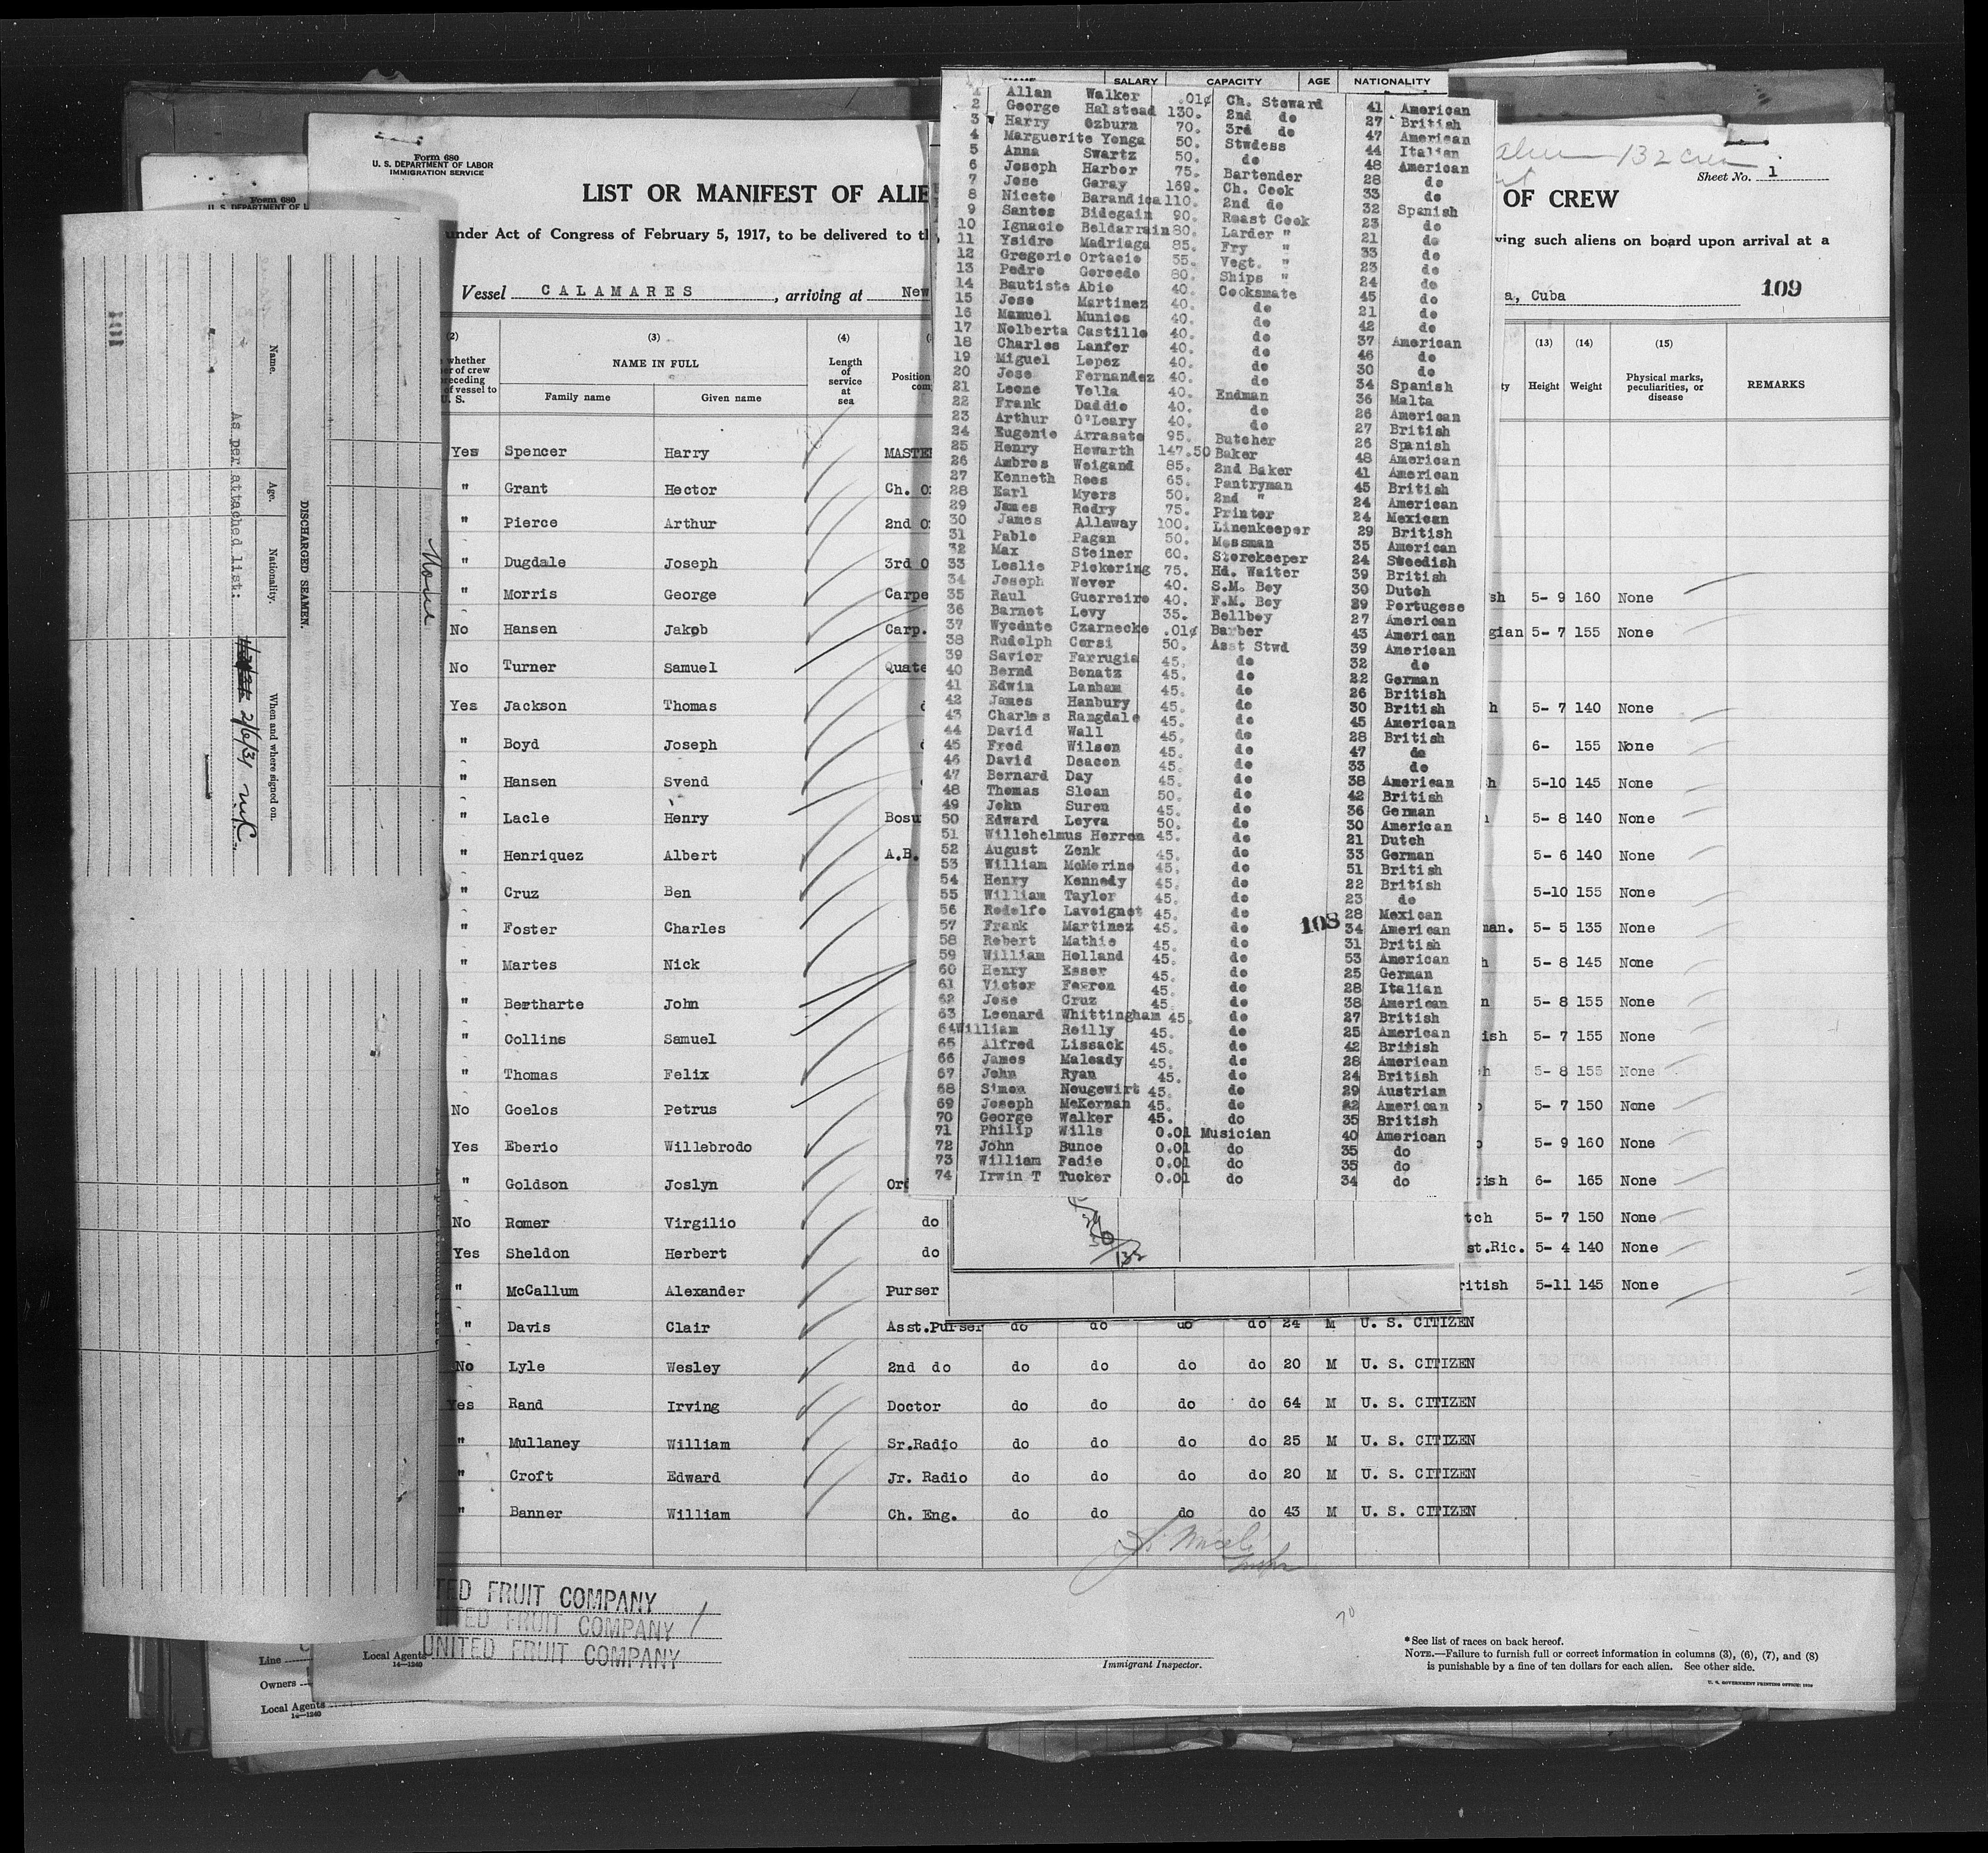 Form 680
U. S. DEPARTMENT OF LABOR
IMMIGRATION SERVICE
Form 680
U. S. DEPARTMENT OF L
LIST OR MANIFEST OF ALIE
OF CREW
132 crew
Sheet No. 1
under Act of Congress of February 5, 1917, to be delivered to th
ving such aliens on board upon arrival at a
Vessel CALAMARES, arriving at New
a, Cuba
109
(2) (3) (4)
whether
er of crew
preceding
of vessel to
U. S.
NAME IN FULL
Family name Given name
Length
of
service
at
sea
Position
(13) (14) (15)
Height Weight Physical marks,
peculiarities, or
disease
REMARKS
Yes Spencer Harry MASTE
" Grant Hector Ch. O
" Pierce Arthur 2nd O
" Dugdale Joseph 3rd O
" Morris George Carpe sh 5- 9 160 None
No Hansen Jakob Carp. gian 5- 7 155 None
No Turner Samuel Quate
Yes Jackson Thomas h 5- 7 140 None
" Boyd Joseph 6- 155 None
" Hansen Svend h 5-10 145 None
" Lacle Henry Bosu 5- 8 140 None
" Henriquez Albert A.B. 5- 6 140 None
" Cruz Ben 5-10 155 None
" Foster Charles man. 5- 5 135 None
" Martes Nick h 5- 8 145 None
" Bertharte John n 5- 8 155 None
" Collins Samuel ish 5- 7 155 None
" Thomas Felix h 5- 8 155 None
No Goelos Petrus 5- 7 150 None
Yes Eberio Willebrodo 5- 9 160 None
" Goldson Joslyn Ord tish 6- 165 None
No Romer Virgilio do tch 5- 7 150 None
Yes Sheldon Herbert do st.Ric. 5- 4 140 None
" McCallum Alexander Purser ritish 5-11 145 None
" Davis Clair Asst.Purser do do do do 24 M U. S. CITIZEN
No Lyle Wesley 2nd do do do do do 20 M U. S. CITIZEN
Yes Rand Irving Doctor do do do do 64 M U. S. CITIZEN
" Mullaney William Sr.Radio do do do do 25 M U. S. CITIZEN
" Croft Edward Jr. Radio do do do do 20 M U. S. CITIZEN
" Banner William Ch. Eng. do do do do 43 M U. S. CITIZEN
NAME SALARY CAPACITY AGE NATIONALITY
1 Allan Walker .01¢ Ch. Steward 41 American
2 George Halstead 130. 2nd do 27 British
3 Harry Ozburn 70. 3rd do 47 American
4 Marguerite Yonga 50. Stwdess 44 Italian
5 Anna Swartz 50. do 48 American
6 Joseph Harbor 75. Bartender 28 do
7 Jose Garay 169. Ch. Cook 33 do
8 Niceto Barandica 110. 2nd do 32 Spanish
9 Santos Bidegain 90. Roast Cook 23 do
10 Ignacio Beldarrain 80. Larder " 21 do
11 Ysidro Madriaga 85. Fry " 33 do
12 Gregorio Ortacio 55. Vegt. " 23 do
13 Pedro Gorcedo 80. Ships " 24 do
14 Bautiste Abio 40. Cooksmate 45 do
15 Jose Martinez 40. do 21 do
16 Manuel Munios 40. do 42 do
17 Nolberta Castillo 40. do 37 American
18 Charles Lanfer 40. do 46 do
19 Miguel Lopez 40. do 30 do
20 Jose Fernandez 40. do 34 Spanish
21 Leone Vella 40. Endman 36 Malta
22 Frank Daddio 40. do 26 American
23 Arthur O'Leary 40. do 27 British
24 Eugenio Arrasate 95. Butcher 26 Spanish
25 Henry Howarth 147.50 Baker 48 American
26 Ambros Weigand 85. 2nd Baker 41 American
27 Kenneth Rees 65. Pantryman 45 British
28 Earl Myers 50. 2nd " 24 American
29 James Redry 75. Printer 24 Mexican
30 James Allaway 100. Linenkeeper 29 British
31 Pablo Pagan 50. Messman 35 American
32 Max Steiner 60. Storekeeper 24 Swedish
33 Leslie Pickering 75. Hd. Waiter 39 British
34 Joseph Wever 40. S.M. Boy 30 Dutch
35 Raul Guerreiro 40. F.M. Boy 29 Portugese
36 Barnet Levy 35. Bellboy 27 American
37 Wycente Czarnecke .01¢ Barber 43 American
38 Rudolph Corsi 50. Asst Stwd 39 American
39 Savior Farrugia 45. do 32 do
40 Bernd Bonatz 45. do 22 German
41 Edwin Lanham 45. do 26 British
42 James Hanbury 45. do 30 British
43 Charles Rangdale 45. do 45 American
44 David Wall 45. do 28 British
45 Fred Wilson 45. do 47 do
46 David Deacon 45. do 33 do
47 Bernard Day 45. do 38 American
48 Thomas Sloan 50. do 42 British
49 John Suren 45. do 36 German
50 Edward Leyva 50. do 30 American
51 Willehelmus Herren 45. do 21 Dutch
52 August Zenk 45. do 33 German
53 William McMerine 45. do 51 British
54 Henry Kennedy 45. do 22 British
55 William Taylor 45. do 23 do
56 Rodolfo Laveignet 45. do 28 Mexican
57 Frank Martinez 45. do 108 34 American
58 Robert Mathie 45. do 31 British
59 William Holland 45. do 53 American
60 Henry Esser 45. do 25 German
61 Victor Ferron 45. do 28 Italian
62 Jose Cruz 45. do 38 American
63 Leonard Whittingham 45. do 27 British
64 William Reilly 45. do 25 American
65 Alfred Lissack 45. do 42 British
66 James Maleady 45. do 28 American
67 John Ryan 45. do 24 British
68 Simon Neugewirt 45. do 29 Austrian
69 Joseph McKernan 45. do 22 American
70 George Walker 45. do 35 British
71 Philip Wills 0.01 Musician 40 American
72 John Bunce 0.01 do 35 do
73 William Fadie 0.01 do 35 do
74 Irwin T Tucker 0.01 do 34 do
132
DISCHARGED SEAMEN.
Name. Age. Nationality. When and where signed on.
As per attached list: 2/6/31 N.Y.
None
TED FRUIT COMPANY
ITED FRUIT COMPANY
UNITED FRUIT COMPANY
Line
Owners
Local Agents
14—1240
Local Agents
14—1240
Immigrant Inspector.
70
*See list of races on back hereof.
NOTE.—Failure to furnish full or correct information in columns (3), (6), (7), and (8)
is punishable by a fine of ten dollars for each alien. See other side.
U. S. GOVERNMENT PRINTING OFFICE: 1930